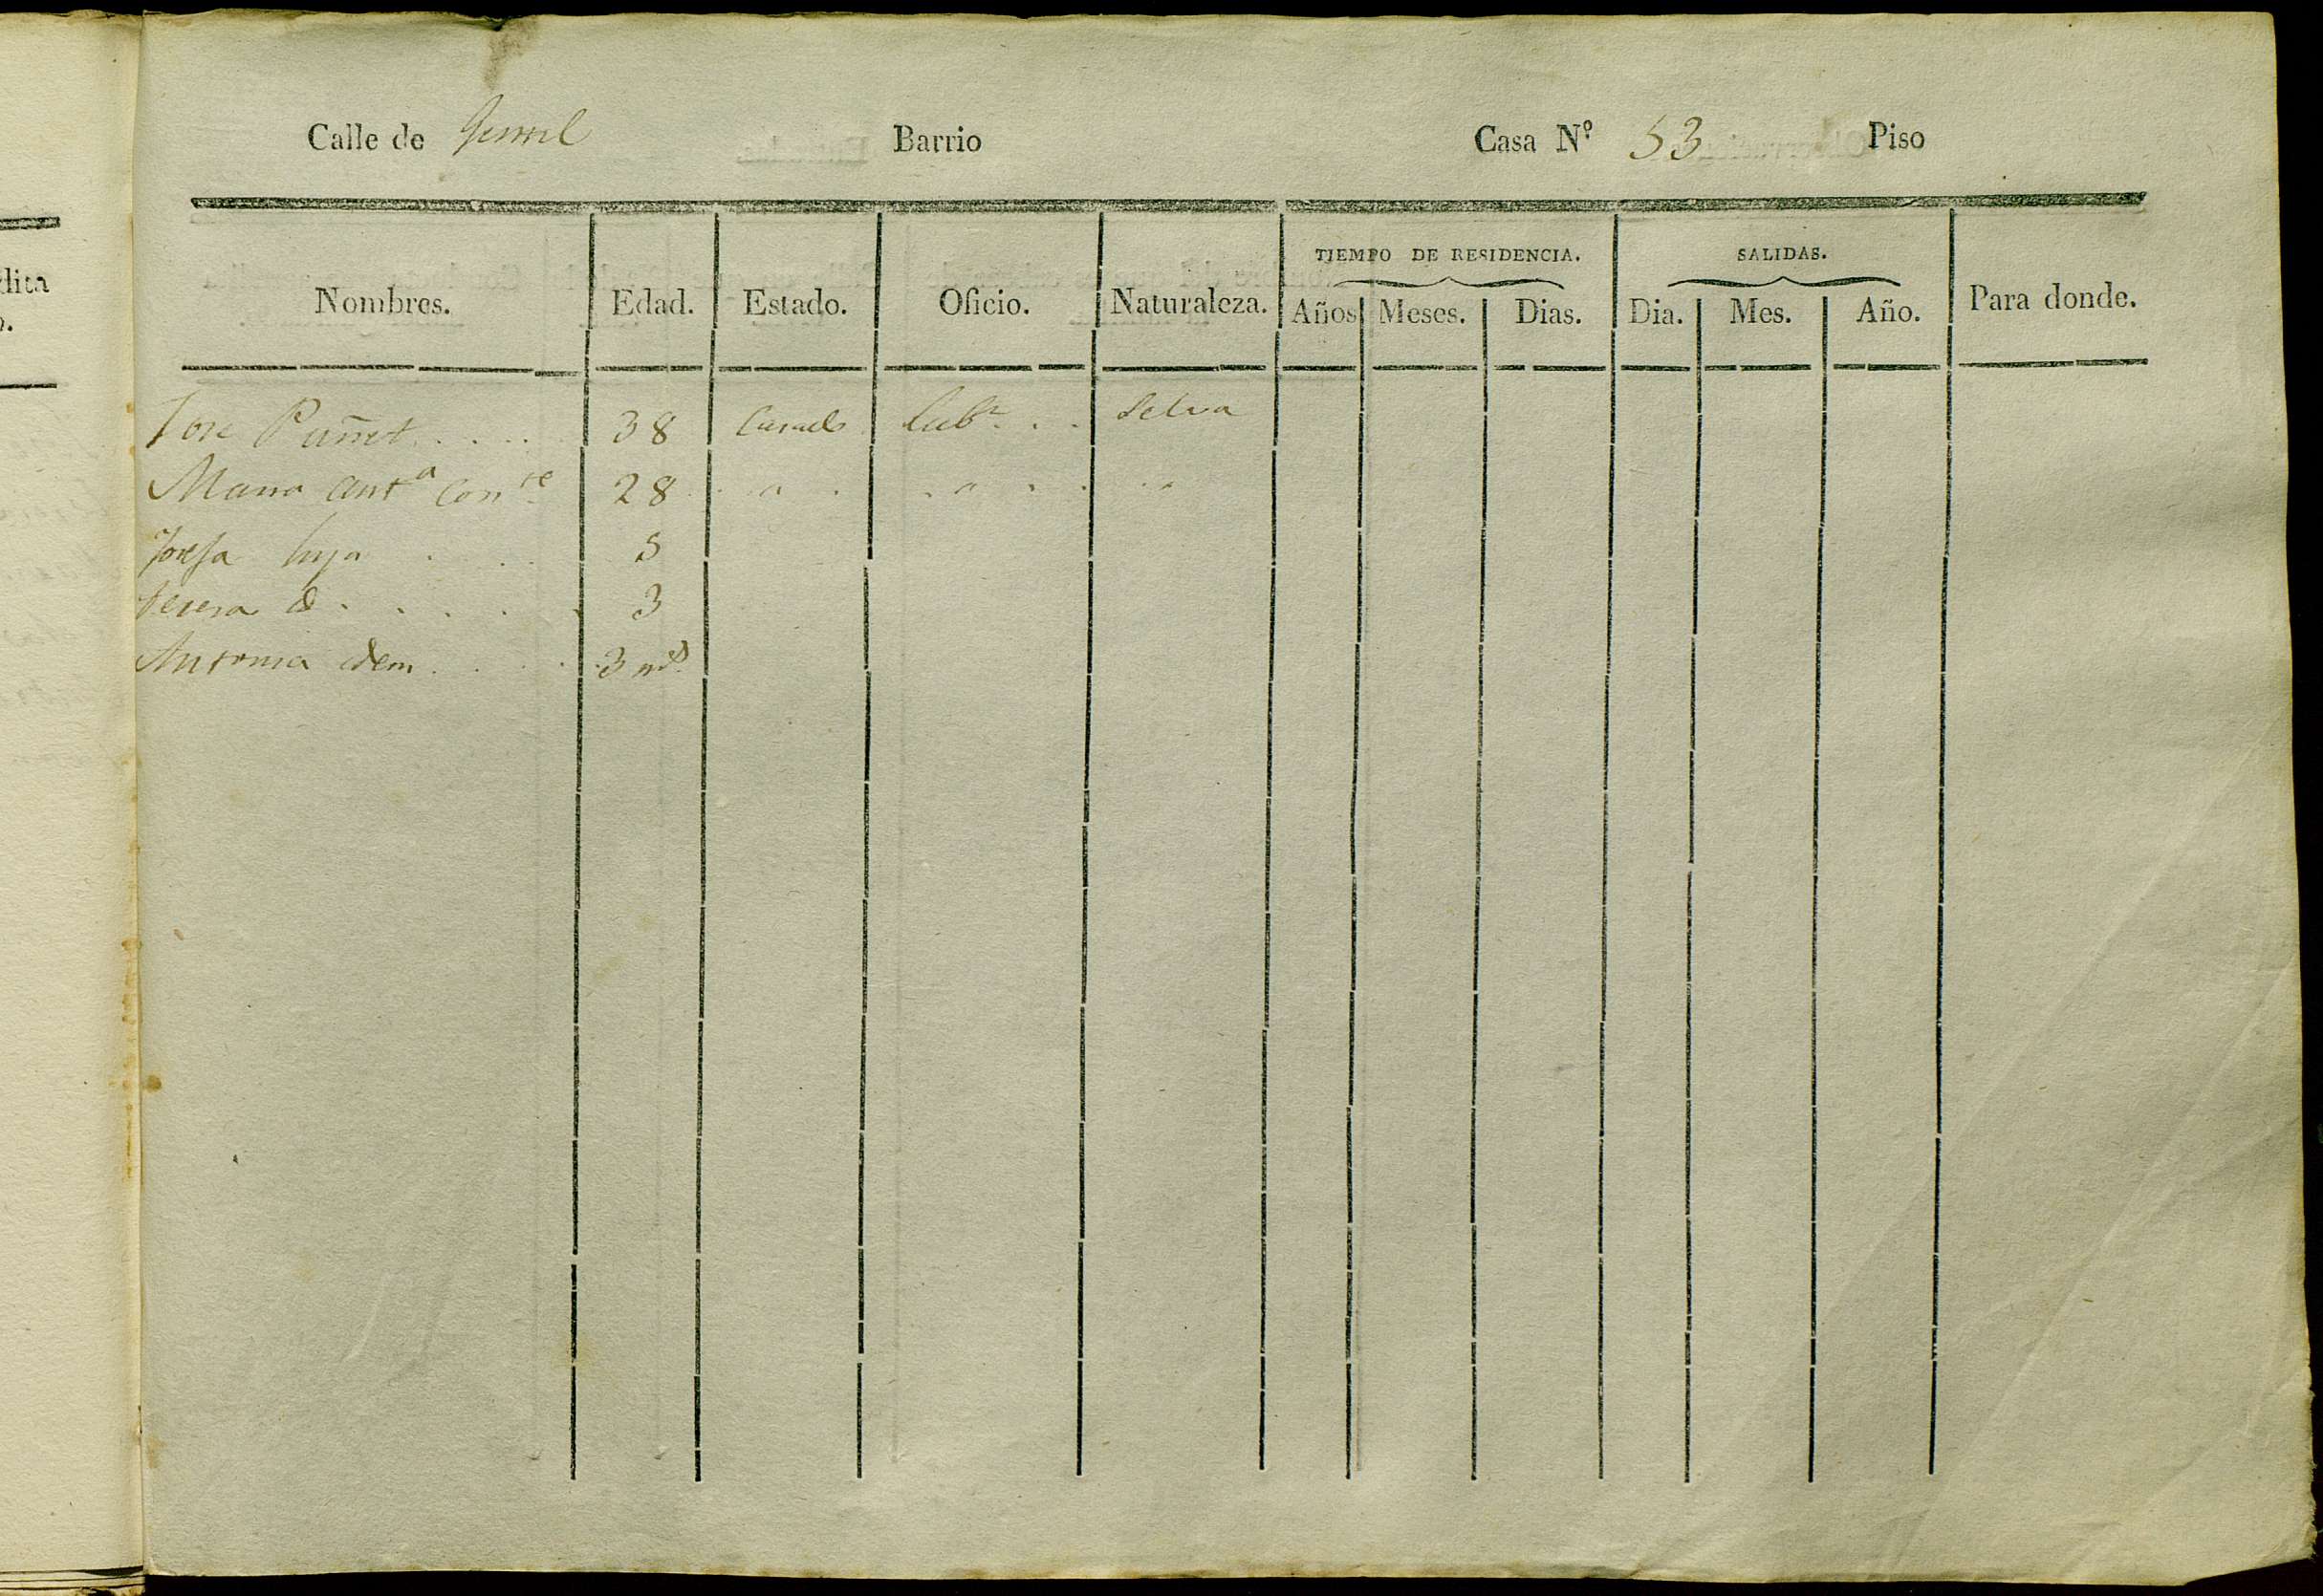 dita
o.
Calle de Barrio Casa Nº 53 Piso
TIEMPO DE RESIDENCIA. SALIDAS.
Nombres. Edad. Estado. Oficio. Naturaleza. Años Meses. Dias. Dia. Mes. Año. Para donde.
Jose Puñet 38 Casado Labr Selva
Maria Anta Conte 28 " " "
Josefa hija 5
Teresa id 3
Antonia idem 3 ms